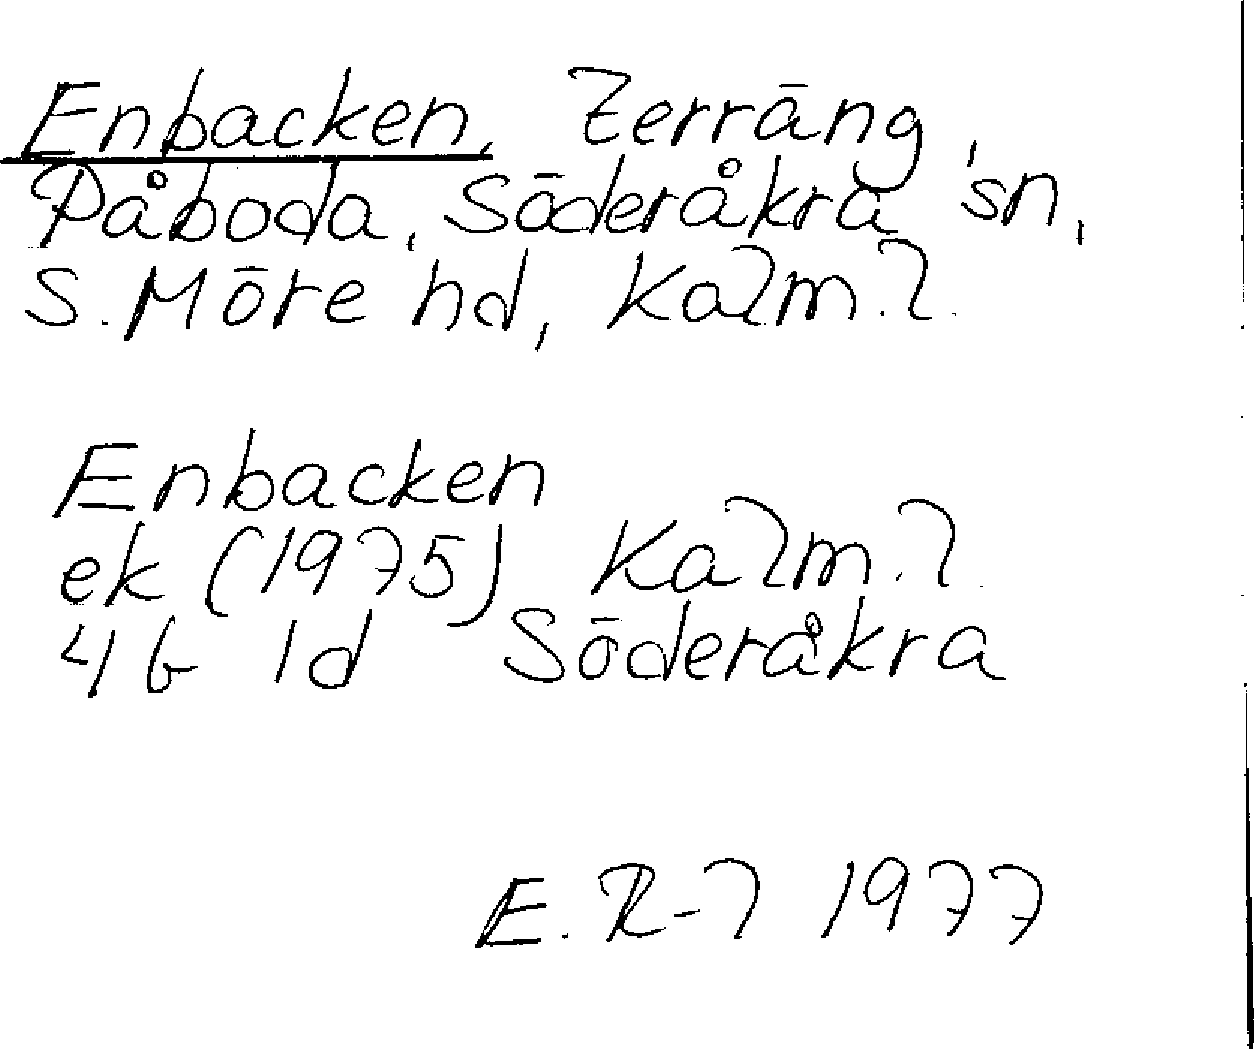 Enbacken, Terräng,
Påboda, Söderåkra sn,
S. Möre hd, Kalm. l.
Enbacken
ek (1975) Kalm. l.
4G 1d Söderåkra
E. R-7 1977